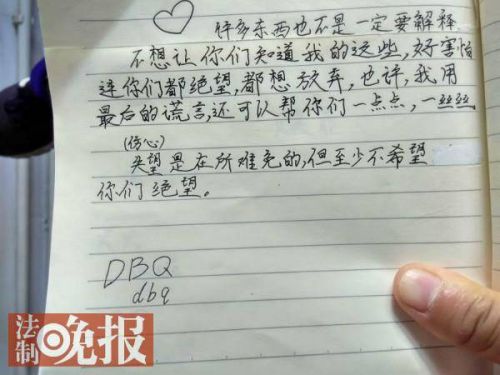 许多东西也不是一定要解释
不想让你们知道我的这些,好害怕
连你们都绝望,都想放弃,也许,我用
最后的谎言,还可以帮你们一点点,一丝丝
(伤心)
失望是在所难免的,但至少不希望
你们绝望。
DBQ
dbq
法制晚报